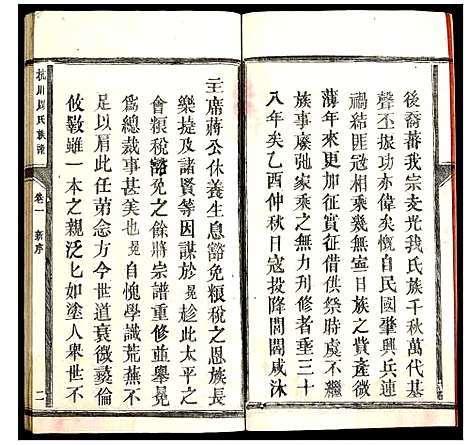 後裔蕃我宗支光我氏族千秋萬代基
聲丕振功亦偉矣慨自民國肇興兵連
禍結匪冠相乘幾無寧日族之產微
薄年來更加征實征借供祭時虞不繼
族事廢弛家乘之無力刋修者垂三十
八年矣乙酉仲秋日寇投降閭閻咸沐
主席蔣公休養生息豁免粮稅之恩族長
樂捷及諸賢等因謀於晃趁此太平之
會粮稅豁免之餘將宗譜重修並舉晃
為總裁事甚美也晃自愧學識荒蕪不
足以肩此任苐念方今世道衰微彛倫
攸斁雖一本之親泛匕如塗人舉世不
杭川周氏族譜
卷一
新序
二